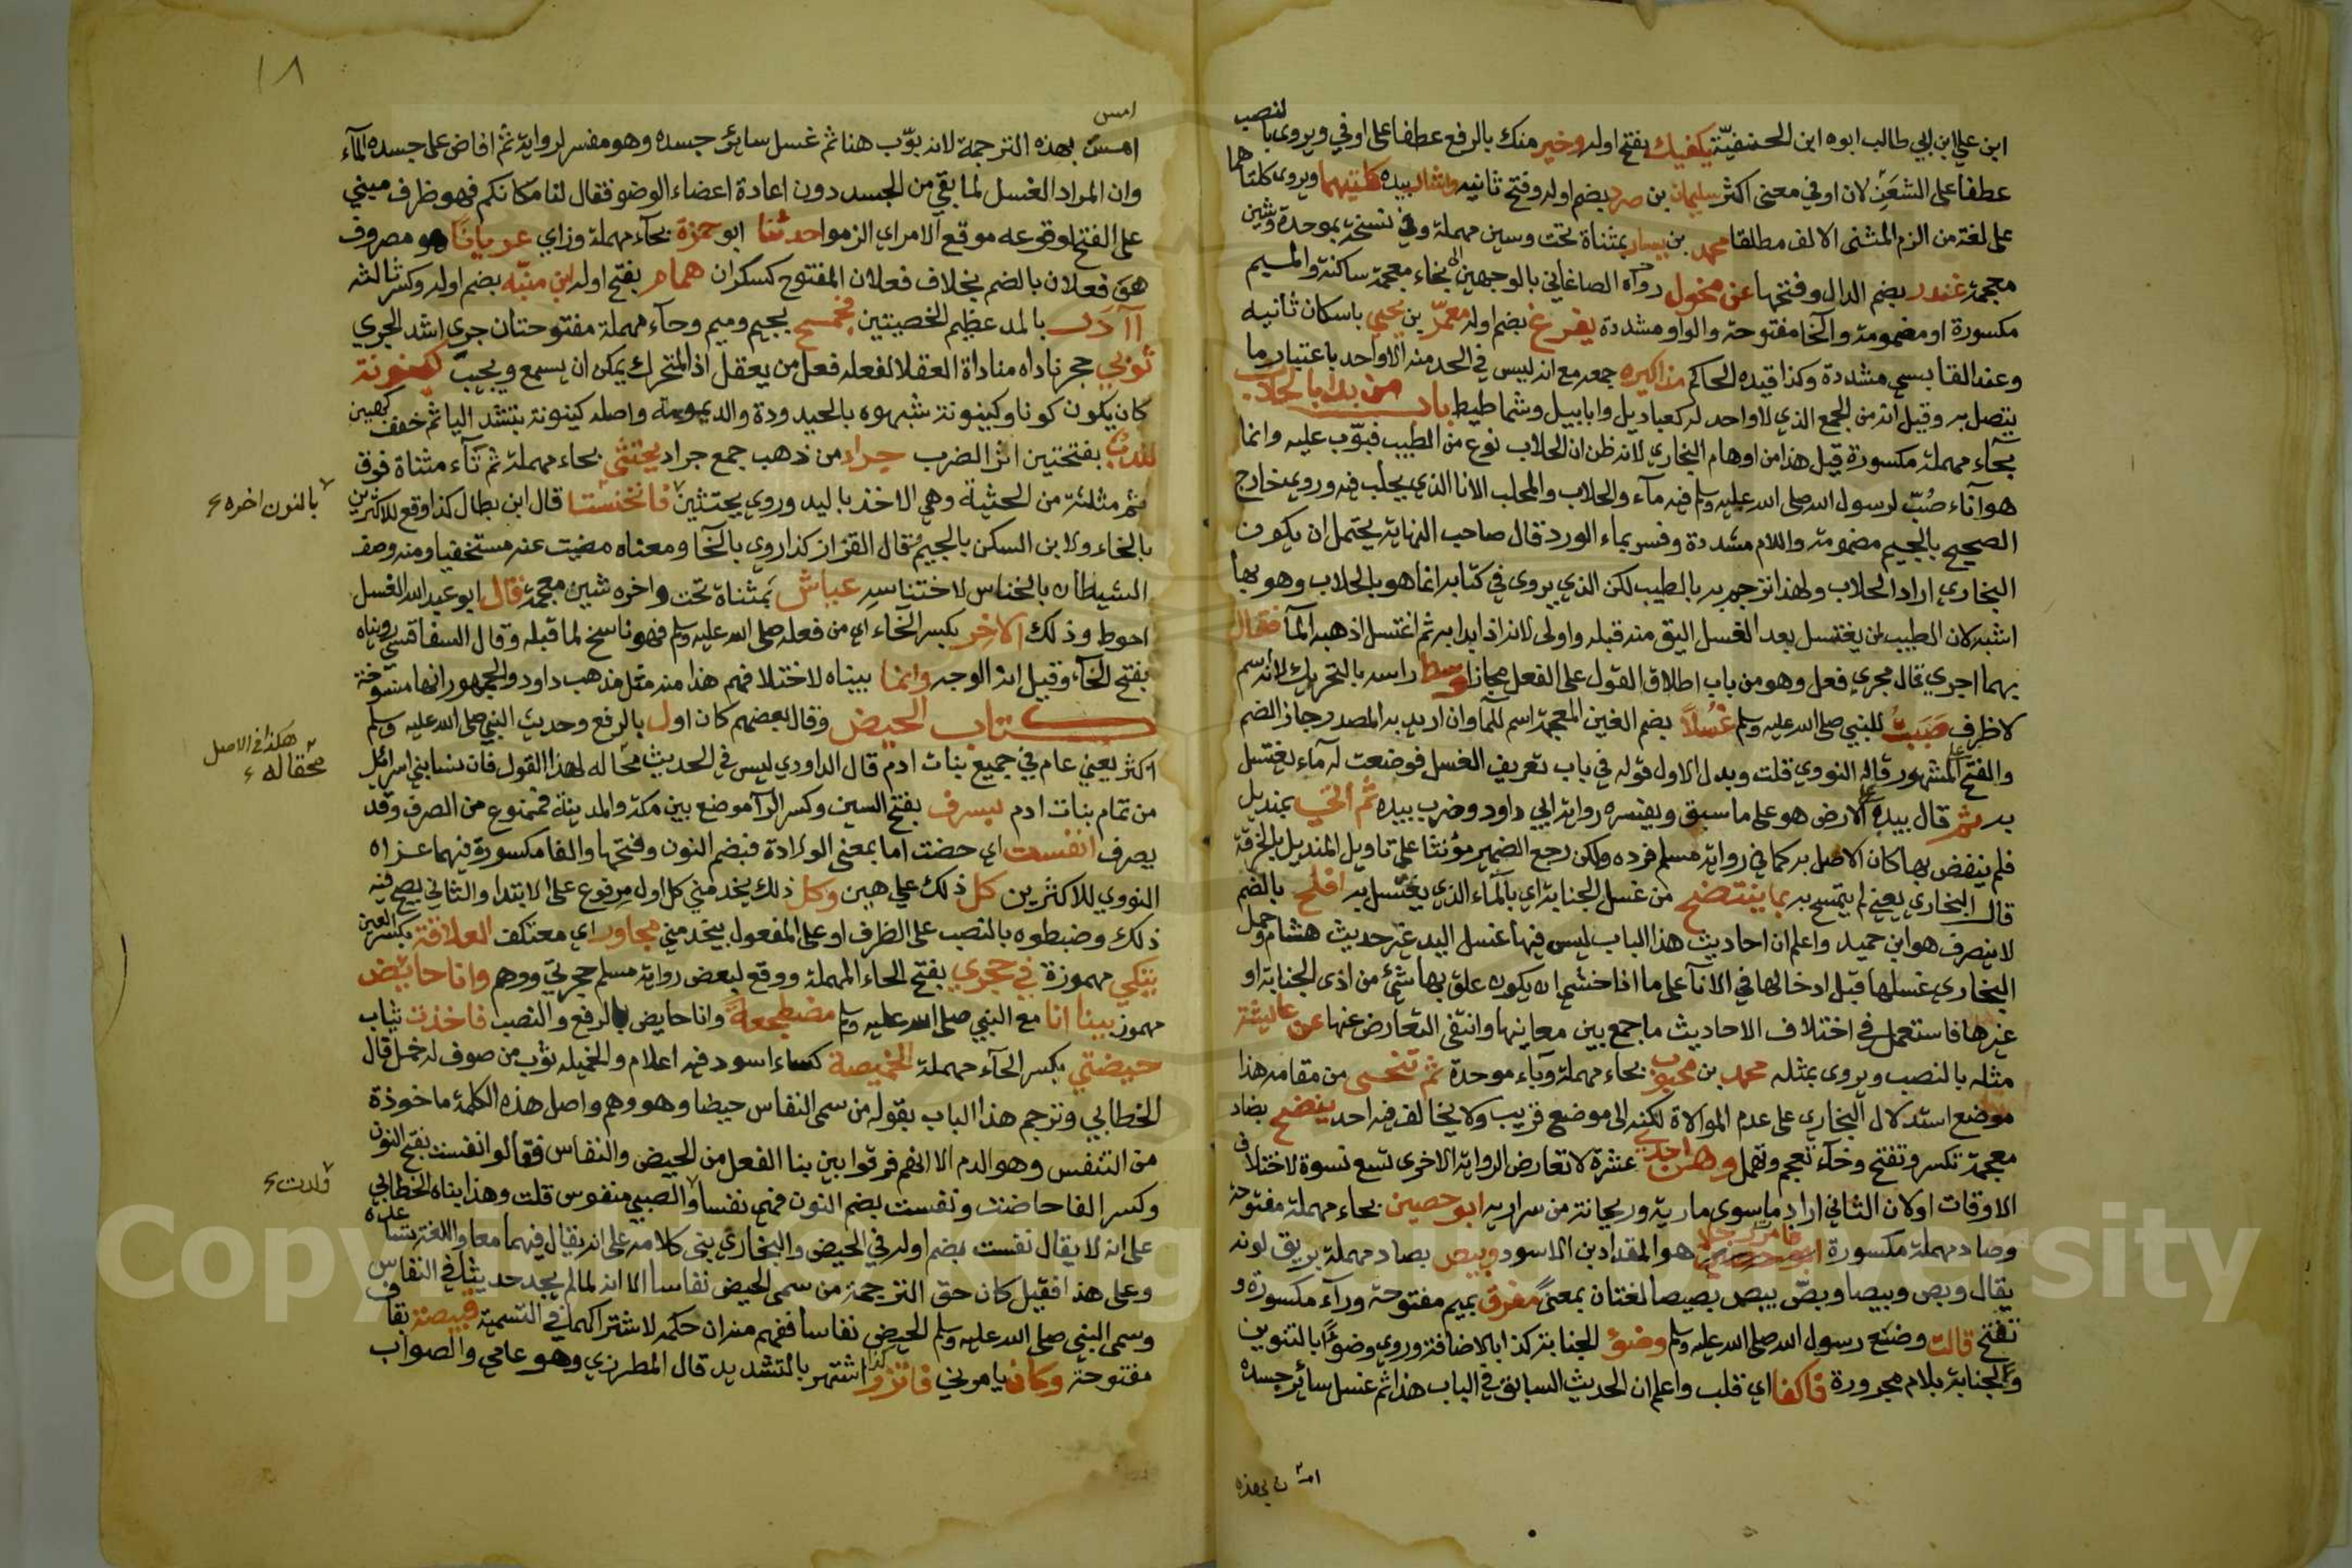 ابن علي ابن ابي طالب ابوه ابن الحنفيّة يكفيك بفتح اوله وخير منك بالرفع عطفا على اوفي ويروى بالنصب
عطفا على الشعر لان اوفي معنى اكثر سليمان بن صرد بضم اوله وفتح ثانيه واشار بيده كلتيهما ويروى كلتاهما
على لغة من الزم المثنى الالف مطلقا محمد بن يسار بمثناة تحت وسين مهملة وفي نسخة بموحدة وشين
معجمة غندر بضم الدال وفتحها عن مخول رواه الصاغاني بالوجهين اي بخاء معجمة ساكنة والميم
مكسورة او مضمومة والخا مفتوحة والواو مشددة يفرغ بضم اوله معمّر بن يحيى باسكان ثانيه
وعند القابسي مشددة وكذا قيده الحاكم مذاكيره جمعه مع انه ليس في الحد منه الا واحد باعتبار ما
يتصل به وقيل انه من الجمع الذي لا واحد له كعباديل وابابيل وشماطيط باب من بدا بالحلاب
بحاء مهملة مكسورة قيل هذا من اوهام البخاري لانه ظن ان الحلاب نوع من الطيب فبوّب عليه وانما
هو اناء صُبّ لرسول الله صلى الله عليه وسلم فيه ماء والحلاب والمحلب الانا الذي يحلب فيه وروي خارج
الصحيح بالجيم مضمومة واللام مشددة وفسر بماء الورد قال صاحب النهاية يحتمل ان يكون
البخاري اراد الحلاب ولهذا ترجم به بالطيب لكن الذي يروى في كتابه انما هو بالحلاب وهو بها
اشبه لان الطيب لمن يغتسل بعد الغسل اليق منه قبله واولى لانه اذا بدا به ثم اغتسل اذهبه الما فقال
بهما اجري قال مجرى فعل وهو من باب اطلاق القول على الفعل مجازا وسط راسه بالتحريك لانه اسم
لا ظرف صببت للنبي صلى الله عليه وسلم غُسلاً بضم الغين المعجمة اسم للما وان اريد به المصدر جاز الضم
والفتح المشهور قاله النووي قلت ويدل الاول قوله في باب تعريف الغسل فوضعت له ماء يغتسل
به ثم قال بيده الارض هو على ما سبق ويفسره رواية ابي داود وضرب بيده ثم اتى بمنديل
فلم ينفض بها كان الاصل به كما في رواية مسلم فرده ولكن رجع الضمير مؤنثا على تاويل المنديل بالخرقة
قال البخاري يعني لم يتمسح به بما ينتضح من غسل الجنابة اي بالماء الذي يغتسل به افلح بالضم
لا ينصرف هو ابن حميد واعلم ان احاديث هذا الباب ليس فيها غسل اليد غير حديث هشام وحمل
البخاري غسلها قبل ادخالها في الانا على ما اذا خشي ان يكون علق بها شئ من اذى الجنابة او
غيرها فاستعمل في اختلاف الاحاديث ما جمع بين معانيها وانتفى التعارض عنها عن عايشة
مثله بالنصب ويروى بمثله محمد بن محبوب بحاء مهملة وباء موحدة ثم تنحى من مقامه هذا
موضع استدلال البخاري على عدم الموالاة لكنه الى موضع قريب ولا يخالف فيه احد ينضح بضاد
معجمة تكسر وتفتح وخاء تعجم وتهمل وهن احدى عشرة لا تعارض الرواية الاخرى تسع نسوة لاختلاف
الاوقات او لان الثاني اراد ما سوى مارية وريحانة من سراريه ابو حصين بحاء مهملة مفتوحة
وصاد مهملة مكسورة فامرت رجلا هو المقداد بن الاسود وبيص بصاد مهملة بريق لونه
يقال وبص وبيصا وبصّ يبص بصيصا لغتان بمعنىً مفرق بميم مفتوحة وراء مكسورة و
تفتح قالت وضع رسول الله صلى الله عليه وسلم وضؤ للجنابة كذا بالاضافة وروي وضوًا بالتنوين
والجنابة بلام مجرورة فاكفا اي قلب واعلم ان الحديث السابق في الباب هذا ثم غسل سائر جسده
امسّ بهذه
١٨
امس
امسّ بهذه الترجمة لانه بوّب هنا ثم غسل سائر جسده وهو مفسر لرواية ثم افاض على جسده الماء
وان المراد الغسل لما بقي من الجسد دون اعادة اعضاء الوضو فقال لنا مكانكم فهو ظرف مبني
على الفتح لوقوعه موقع الامر اي الزموا حدثنا ابو حمزة بحاء مهملة وزاي عريانا هو مصروف
فعلان بالضم بخلاف فعلان المفتوح كسكران همام بفتح اوله ابن منبّه بضم اوله وكسر ثالثه
آادر بالمد عظيم الخصيتين فجمح بجيم وميم وحاء مهملة مفتوحتان جرى اشد الجري
ثوبي حجر ناداه مناداة العقلا لفعله فعل من يعقل اذ المتحرك يمكن ان يسمع ويجيب كينونة
كان يكون كونا وكينونة شبهوه بالحيدودة والديمومة واصله كينونة بتشد اليا ثم خفف كهين
لندب بفتحتين اثر الضرب جراد من ذهب جمع جراد يحتثي بحاء مهملة ثم تاء مثناة فوق
ثم مثلثة من الحثية وهي الاخذ باليد وروي يحتثين فانخنست قال ابن بطال كذا وقع للاكثرين
بالنون اخره
بالخاء ولابن السكن بالجيم وقال القزاز كذا روي بالخا ومعناه مضيت عنه مستخفيا ومنه وصف
الشيطان بالخناس لاختناسه عياش بمثناة تحت واخره شين معجمة قال ابو عبد الله الغسل
احوط وذلك الاخر بكسر الخاء اي من فعله صلى الله عليه وسلم فهو ناسخ لما قبله وقال السفاقسي رويناه
بفتح الخاء وقيل انه الوجه وانما بيناه لاختلافهم هذا منه مثل مذهب داود والجمهور انها منسوخة
كتاب الحيض وقال بعضهم كان اول بالرفع وحديث النبي صلى الله عليه وسلم
هكذا في الاصل
اكثر يعني عام في جميع بنات ادم قال الداودي ليس في الحديث مخالة لهذا القول فان نسا بني اسرائيل
من تمام بنات ادم بسرف بفتح السين وكسر الرا موضع بين مكة والمدينة فممنوع من الصرف وقد
يصرف انفست اي حضت اما بمعنى الولادة فبضم النون وفتحها والفا مكسورة فيهما عزاه
النووي للاكثرين كل ذلك علي هين وكل ذلك يخدمني كل اول مرفوع على الابتدا والثاني يصح فيه
ذلك وضبطوه بالنصب على الظرف او على المفعول بيخدمني مجاور اي معتكف العلاقة بكسر العين
يتكي مهموزة في حجري بفتح الحاء المهملة ووقع لبعض رواية مسلم حجرتي ووهم وانا حائض
مهموز بينا انا مع النبي صلى الله عليه وسلم مضطجعةً وانا حايض بالرفع والنصب فاخذت ثياب
حيضتي بكسر الحاء مهملة الخميصة كساء اسود فيه اعلام والخميله ثوب من صوف له خمل قال
الخطابي وترجم هذا الباب بقوله من سمى النفاس حيضا وهو وهم واصل هذه الكلمة ماخوذة
من التنفس وهو الدم الا انهم فرقوا بين بنا الفعل من الحيض والنفاس فقالوا نفست بفتح النون
وكسر الفا حاضت ونفست بضم النون فهي نفسا والصبي منفوس قلت وهذا بناه الخطابي
ولدت
على انه لا يقال نفست بضم اوله في الحيض والبخاري بنى كلامه على انه يقال فيهما معا واللغة تساعده
وعلى هذا فقيل كان حق الترجمة من سمى الحيض نفاسا الا انه لما لم يجد حديثا في النفاس
وسمى النبي صلى الله عليه وسلم الحيض نفاسا ففهم منه ان حكمه لاشتراكهما في التسمية قبيصة بقاف
مفتوحة وكان يامرني فاتزر كذا اشتهر بالتشديد قال المطرزي وهو عامي والصواب
Copyright © King Saud University